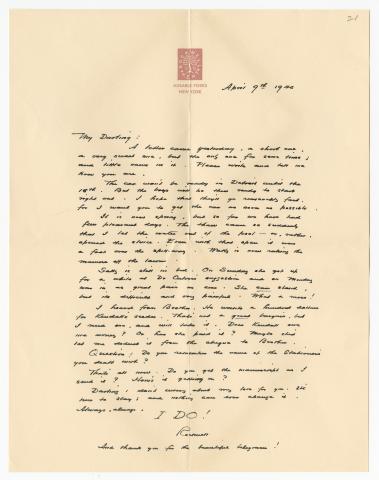 21
AUSABLE FORKS
NEW YORK
April 9th 1940
My Darling:
A letter came yesterday, a short one,
a very sweet one, but the only one for some time;
and little news in it. Please write and tell me
how you are.
The car won't be ready in Detroit until the
18th. But the boys will be there ready to start
right out. I hope that they'll go reasonably fast,
for I want you to get the car as soon as possible.
It is now spring, but so far we have had
few pleasant days. The thaw came so suddenly
that I let the water out of the pool — or, rather,
opened the sluice. Even with that open it was
a foot over the spill-way. Wally is now raking the
manure off the lawn.
Sally is still in bed. On Sunday she got up
for a while at Dr Culver's suggestion and on Monday
was in as great pain as ever. She can stand,
but its difficult and very painful. What a mess!
I heard from Boston. He wants a hundred dollars
for Kendall's radio. That's not a great bargain, but
I need one, and will take it. Does Kendall owe
me money? Or has she paid it? Maybe she'd
let me deduct it from the cheque to Boston.
Question: Do you remember the name of the Stationers
you dealt with?
That's all now. Do you get the manuscript as I
send it? How's it getting on?
Darling; don't worry about my love for you. It's
here to stay; and nothing can ever change it.
Always, always.
I DO!
Rockwell
And thank you for the beautiful telegram!